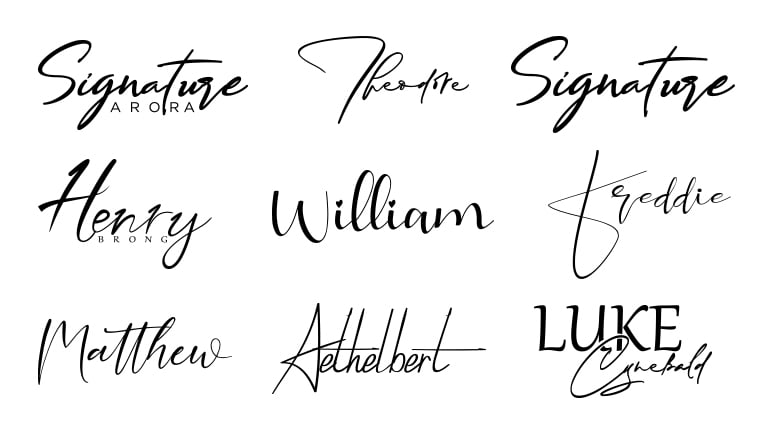 Signature
ARORA
Theodore
Signature
Henry
BRONG
William
Freddie
Matthew
Aethelbert
LUKE
Cynebald